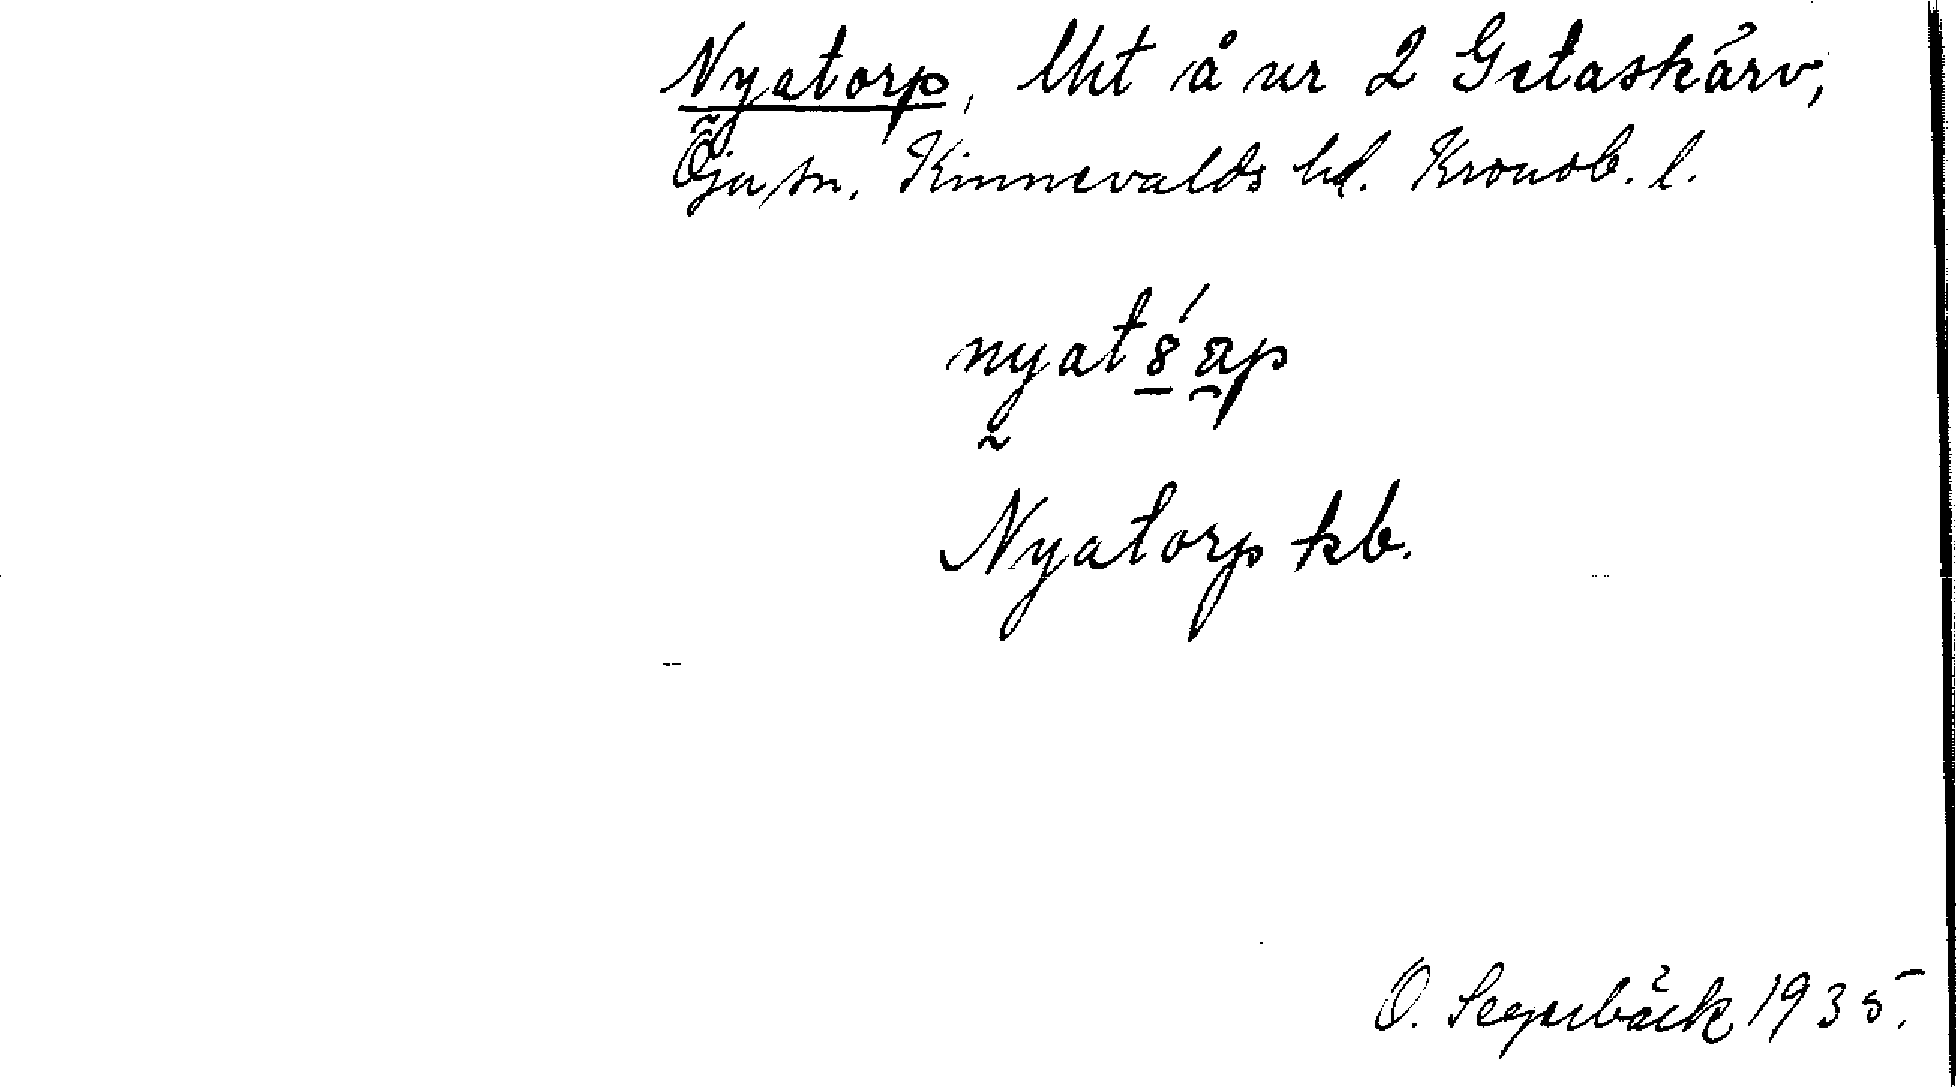 Nyatorp, lht å nr 2 Getaskärv,
Öja sn. Kinnevalds hd. Kronob. l.
Nyatorp kb.
O. Segerbäck 1935.